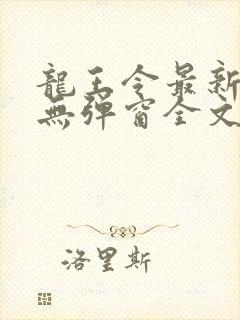 龍王令最新
無彈窗全文
洛里斯